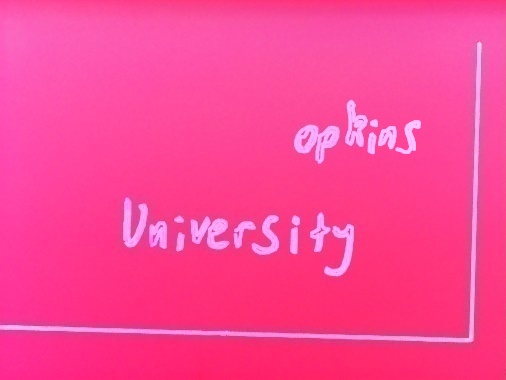 opkins
University